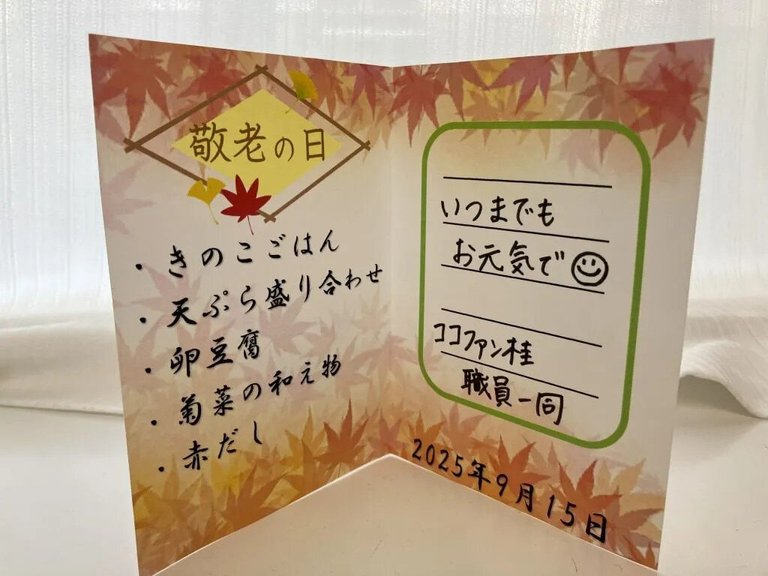 敬老の日
・きのこごはん
・天ぷら盛り合わせ
・卵豆腐
・菊菜の和え物
・赤だし
いつまでも
お元気で
ココファン桂
職員一同
2025年9月15日